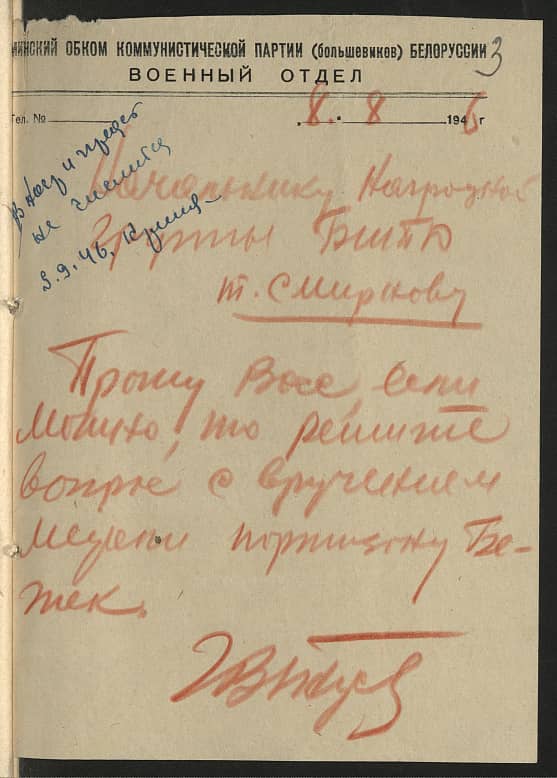 МИНСКИЙ ОБКОМ КОММУНИСТИЧЕСКОЙ ПАРТИИ (большевиков) БЕЛОРУССИИ 3
ВОЕННЫЙ ОТДЕЛ
Тел. № 8. 8 1946 г
не числится
3.9.46.
Начальнику Наградной
Группы БШПД
т. Смирнову
Прошу Вас, если
можно, то решите
вопрос с вручением
медали партизану Бе-